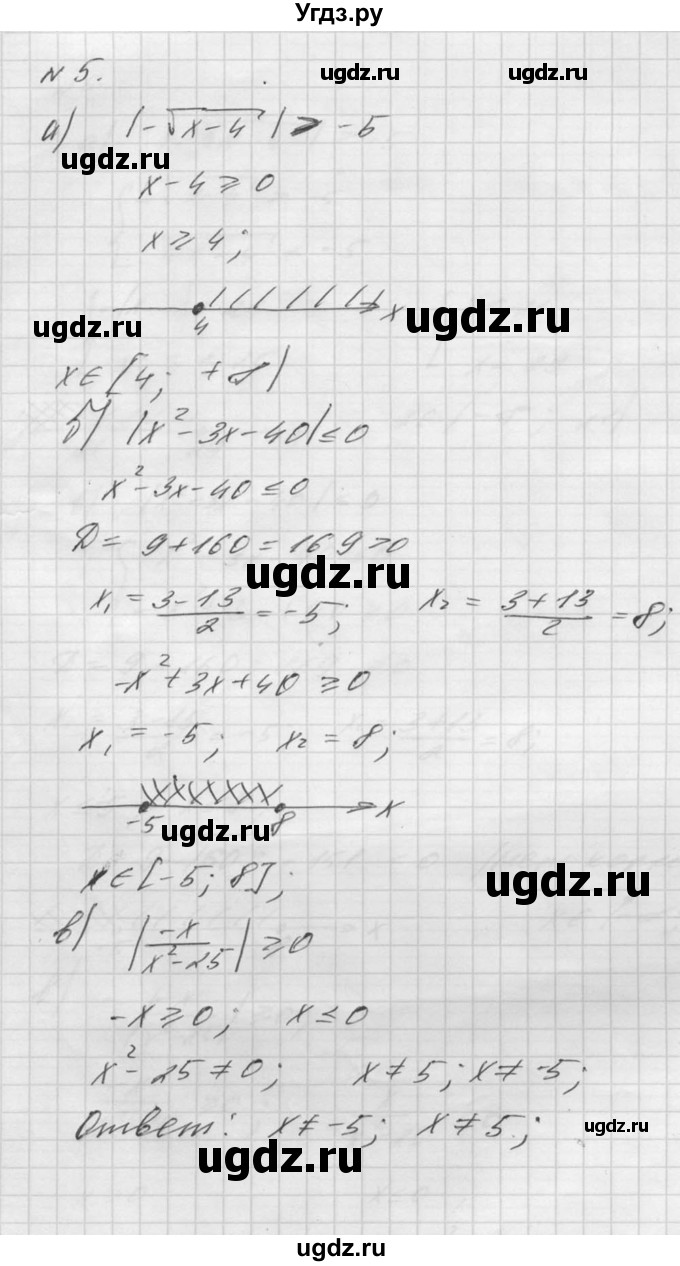 Угдз.ру
ugdz.ru
N 5.
а) |-√(x-4)| > -5
ugdz.ru
x-4 ≥ 0
x ≥ 4;
4 x
ugdz.ru ugdz.ru
x ∈ [4; +8)
б) |x²-3x-40| ≤ 0
x²-3x-40 ≤ 0
D = 9+160 = 169 > 0
ugdz.ru
x₁ = (3-13)/2 = -5; x₂ = (3+13)/2 = 8;
-x²+3x+40 ≥ 0
x₁ = -5; x₂ = 8;
-5 8 x
ugdz.ru
x ∈ [-5; 8];
ugdz.ru
в) |-x/(x²-25)| ≥ 0
-x ≥ 0; x ≤ 0
x²-25 ≠ 0; x ≠ 5; x ≠ -5;
Ответ: x ≠ -5; x ≠ 5;
ugdz.ru
ugdz.ru
ugdz.ru